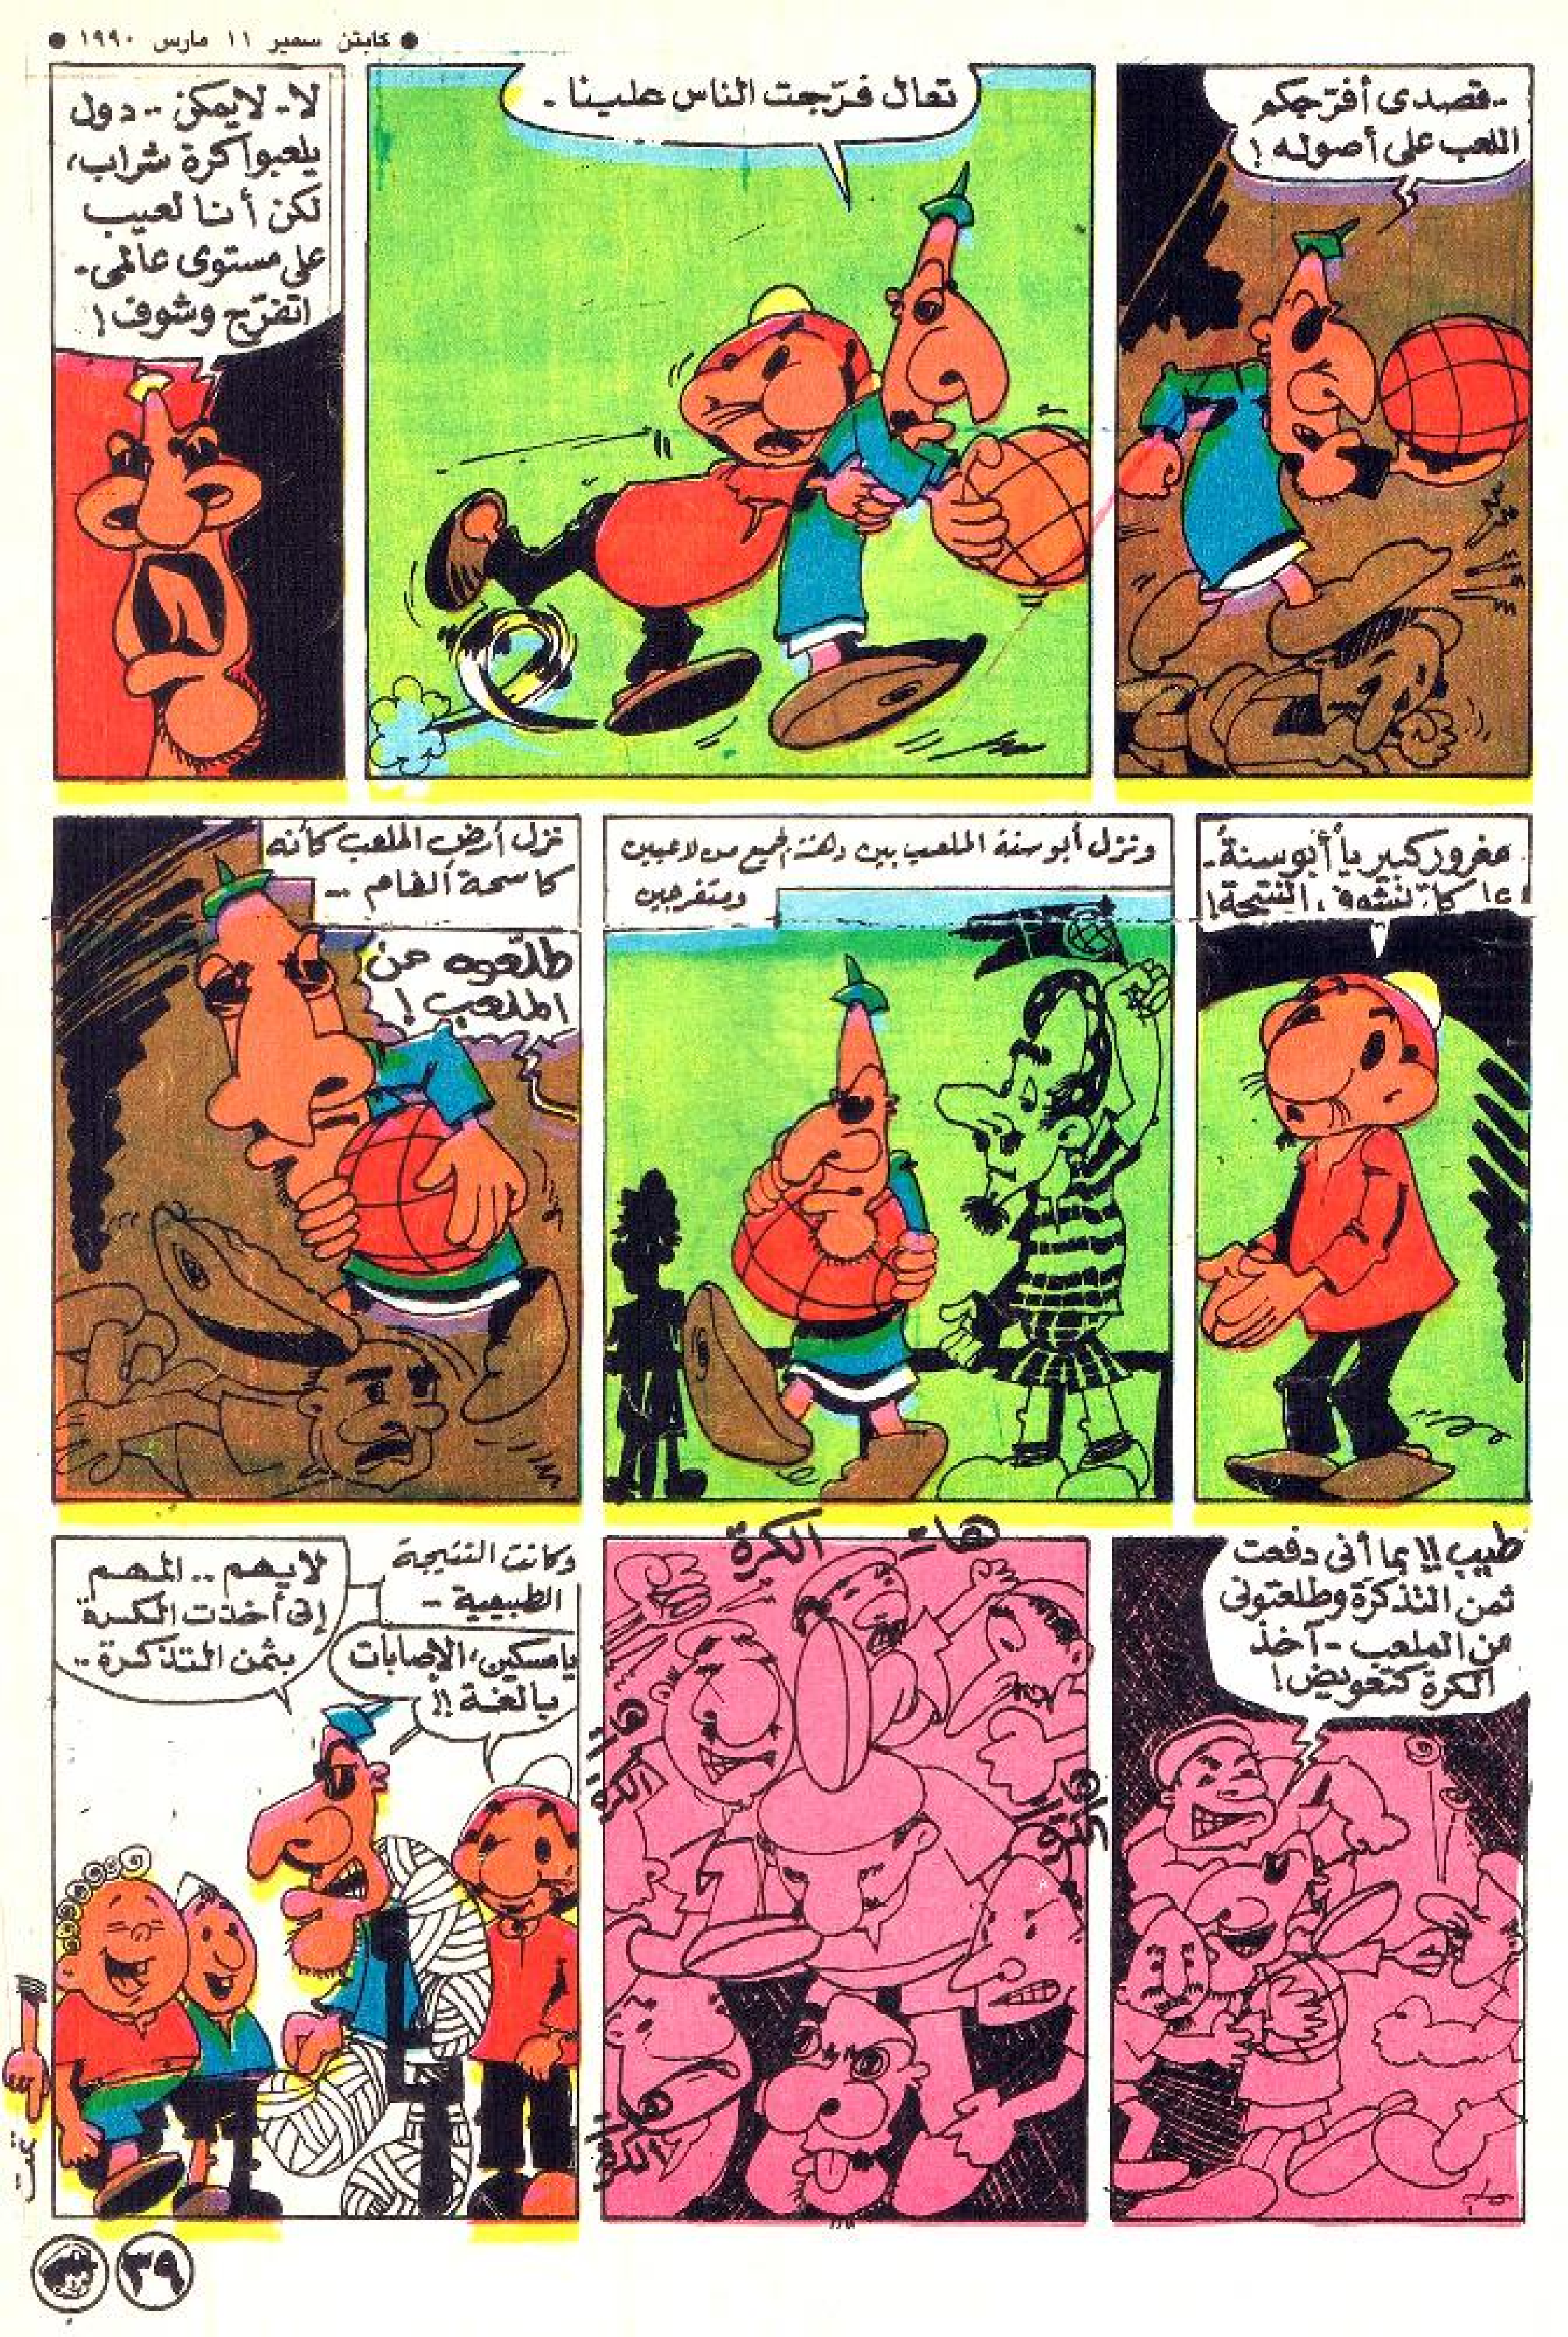 ● كابتن سمير ١١ مارس ١٩٩٠ ●
..قصدى أفرّجكم
اللعب على أصوله !
تعال فرّجت الناس علينا .
لا .. لايمكن .. دول
يلعبوا كرة شراب،
لكن أنا لعيب
على مستوى عالمى .
اتفرّج وشوف !
مغرور كبير يا أبو سنة .
النتيجة !
ونزل أبو سنة الملعب بين دهشة الجميع من لاعبين
ومتفرجين
نزل أرض الملعب كأنه
كاسحة ألغام ..
طلّعوه من
الملعب !
طيب !! بما أنى دفعت
ثمن التذكرة وطلعتونى
من الملعب - آخذ
الكرة كتعويض !
هات الكرة
هات
الكرة
هات
الكرة
هات
الكرة
وكانت النتيجة
الطبيعية ..
يامسكين، الإصابات
بالغة !!
لايهم .. المهم
إنى أخذت الكرة
بثمن التذكرة ..
تمت
٣٩